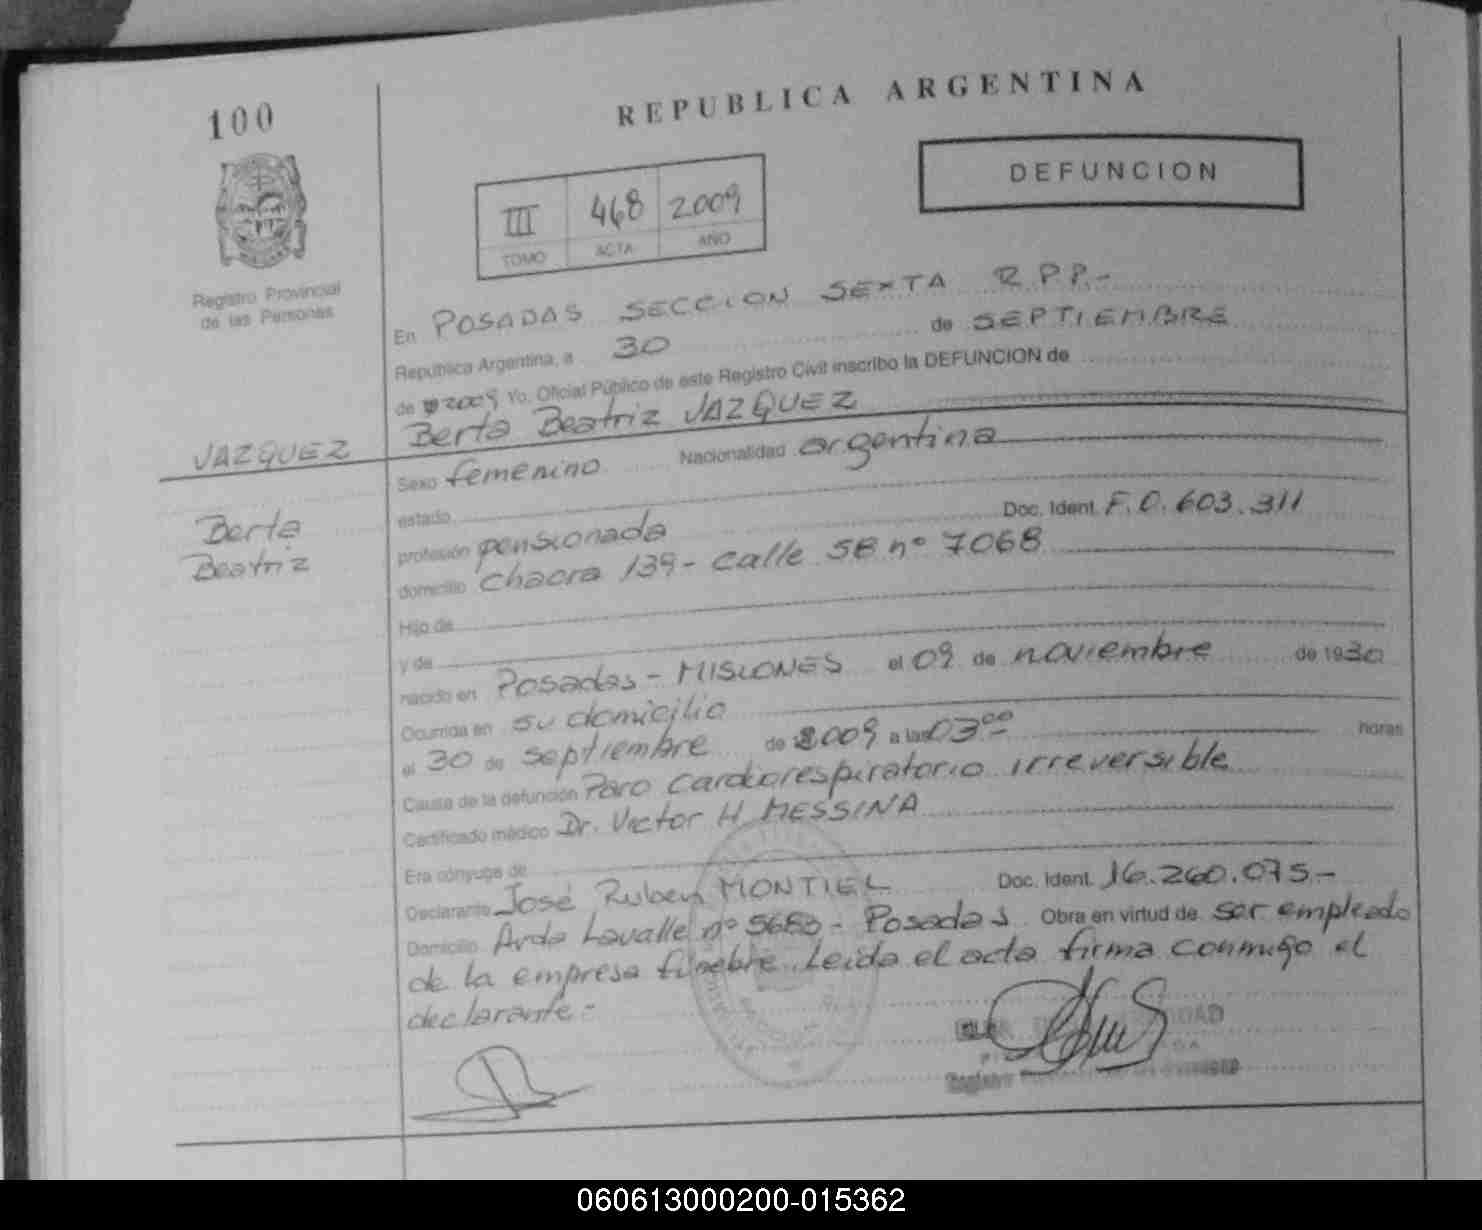 REPUBLICA ARGENTINA
100
DEFUNCION
III 468 2009
TOMO ACTA AÑO
Registro Provincial
de las Personas
En POSADAS SECCION SEXTA R.P.P.-
República Argentina, a 30 de SEPTIEMBRE
de 2009 Yo, Oficial Público de este Registro Civil inscribo la DEFUNCION de
Berta Beatriz VAZQUEZ
VAZQUEZ
Berta
Beatriz
Sexo femenino Nacionalidad argentina
estado
profesión pensionada Doc. Ident. F.0.603.311
domicilio Chacra 139- calle 58 nº 7068
Hijo de
y de
nacido en Posadas - MISIONES el 09 de noviembre de 1930
Ocurrida en su domicilio
el 30 de septiembre de 2009 a las 03⁰⁰ horas
Causa de la defunción Paro cardiorespiratorio irreversible
Certificado médico Dr. Victor H MESSINA
Era cónyuge de
Declarante José Ruben MONTIEL Doc. Ident. 16.260.075.-
Domicilio Avda Lavalle nº 5683 - Posadas Obra en virtud de ser empleado
de la empresa fúnebre. Leida el acta firma conmigo el
declarante.-
060613000200-015362